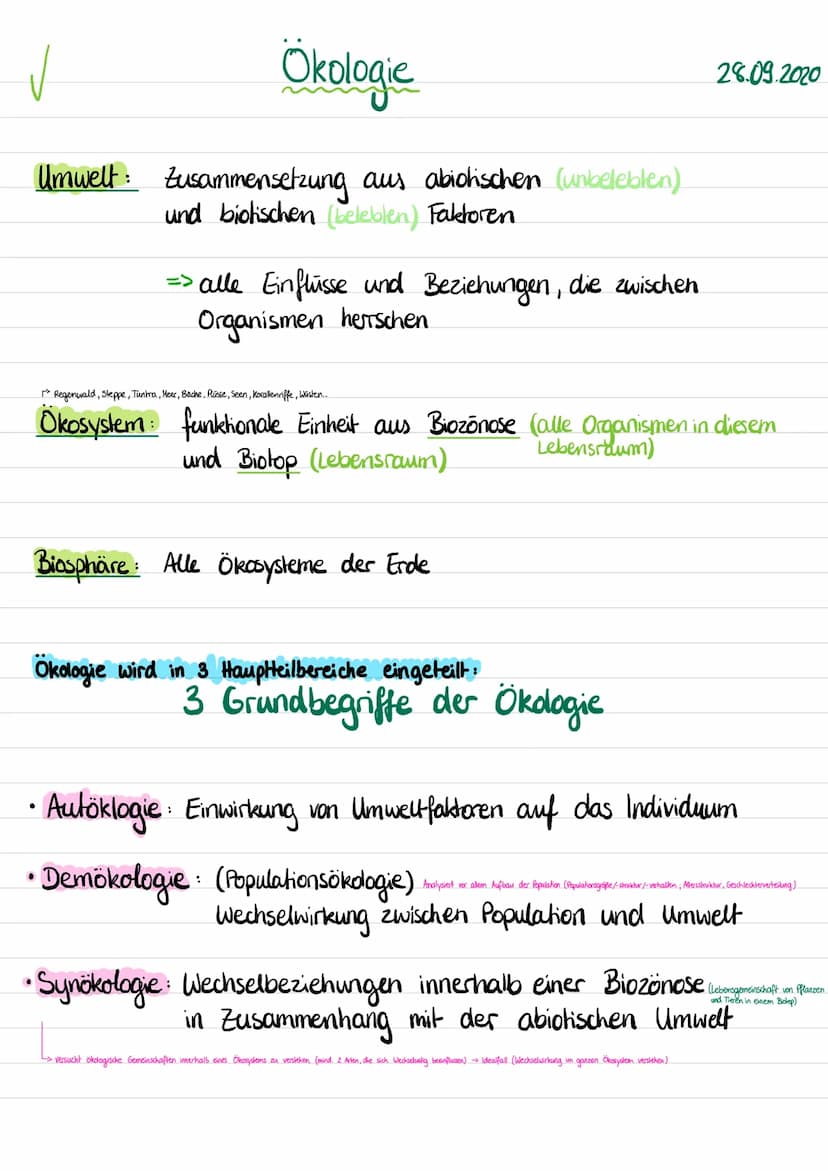 Ökologie
28.09.2020
Umwelt: Zusammensetzung aus abiotischen (unbelebten)
und biotischen (belebten) Faktoren
=> alle Einflüsse und Beziehungen, die zwischen
Organismen herrschen
Regenwald, Steppe, Tuntra, Meer, Bäche, Flüsse, Seen, Korallenriffe, Wüsten..
Ökosystem: funktionale Einheit aus Biozönose (alle Organismen in diesem
Lebensraum)
und Biotop (Lebensraum)
Biosphäre: Alle Ökosysteme der Erde
Ökologie wird in 3 Hauptteilbereiche eingeteilt:
3 Grundbegriffe der Ökologie
• Autöklogie: Einwirkung von Umweltfaktoren auf das Individuum
• Demökologie: (Populationsökologie) Analysiert vor allem Aufbau der Population (Populationsgröße/-struktur/-verhalten, Altersstruktur, Geschlechterverteilung)
Wechselwirkung zwischen Population und Umwelt
• Synökologie: Wechselbeziehungen innerhalb einer Biozönose (Lebensgemeinschaft von Pflanzen
und Tieren in einem Biotop)
in Zusammenhang mit der abiotischen Umwelt
↳ versucht ökologische Gemeinschaften innerhalb eines Ökosystems zu verstehen (mind. 2 Arten, die sich Wechselseitig beeinflussen) → Idealfall (Wechselwirkung im ganzen Ökosystem verstehen)